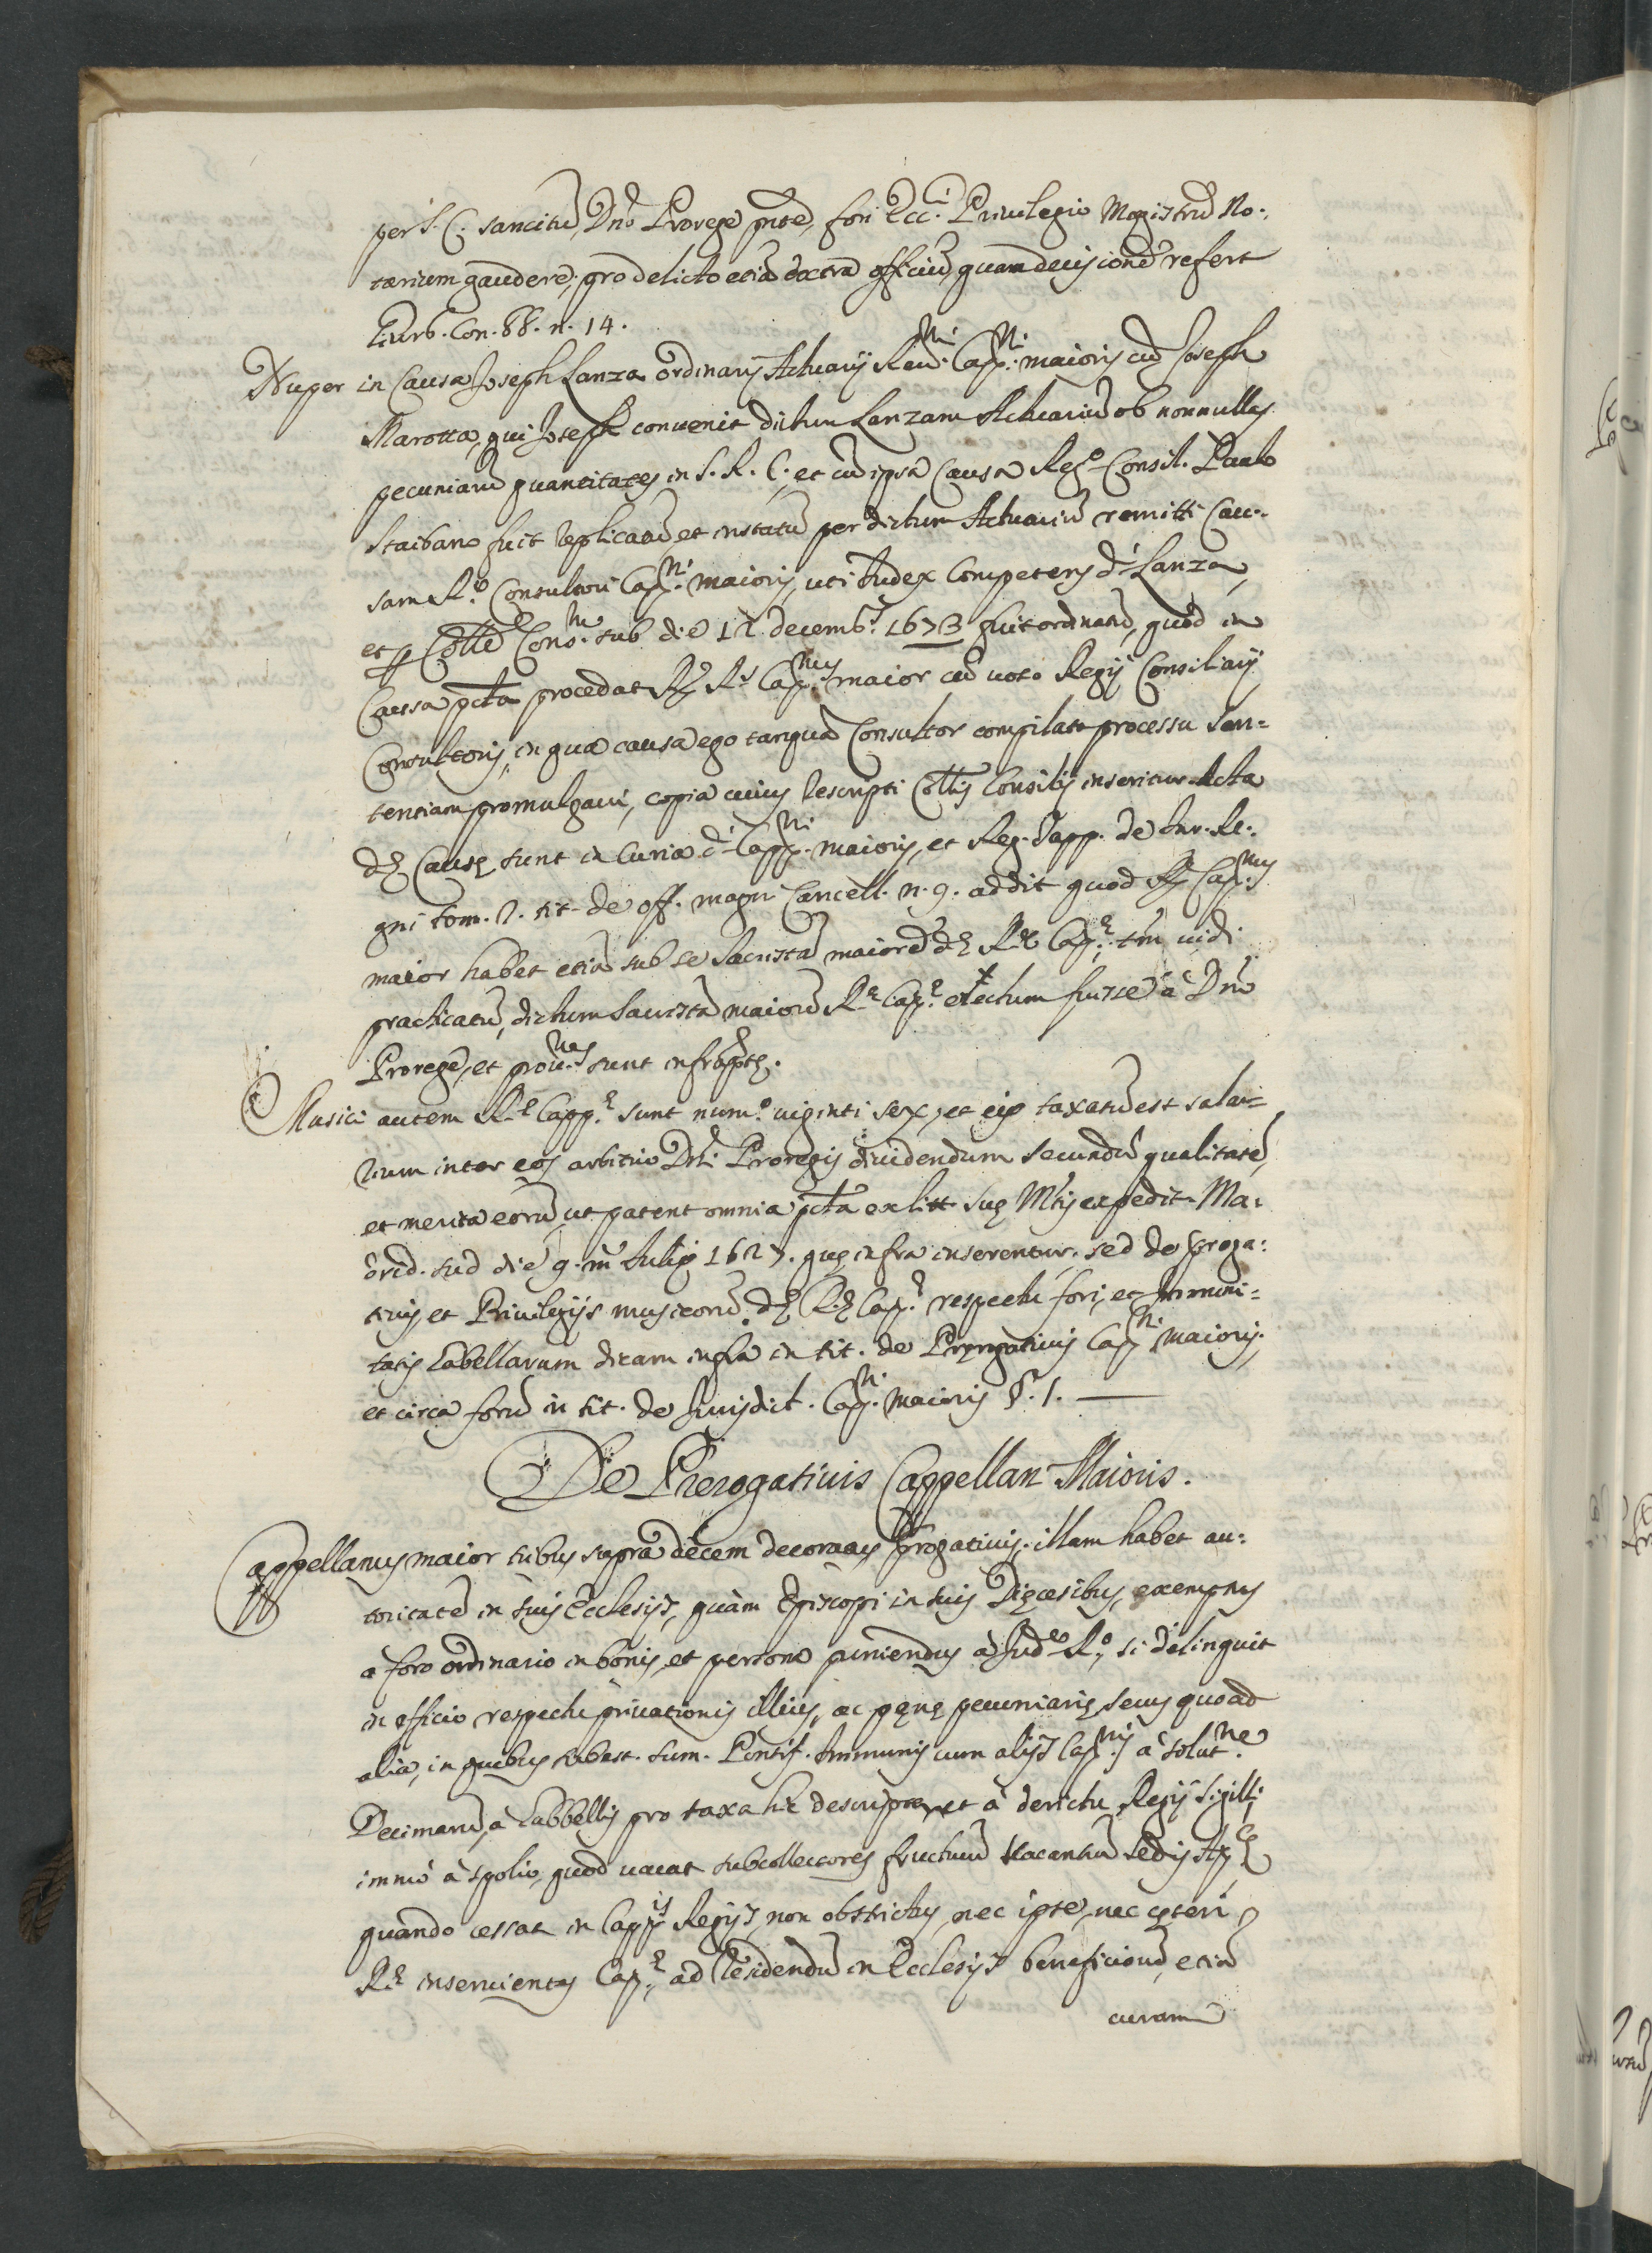 per S. C. sancitũ, Dnõ Prorege pñte, fori Ecc.i Priuilegio Magistrũ No:
tarium gaudere, pro delicto etiã extra officiũ, quam decisionẽ refert
Giurb. Con. 88. n. 14.
Nuper in Causa Joseph Lanza ordinarij Actuarij Reu.mi Capp.ni maioris cũ Joseph
Marotta, qui Joseph conuenit dictum Lanzam Actuariũ ob nonnullas
pecuniarũ quantitates, in S. R. C. et cũ ipsa Causa Reg.o Consil. Paulo
Staibano fuit replicatũ, et instatũ per dictum Actuariũ remitti Cau:
sam R.o Consultori Capp.ni maioris, uti Iudex Competens d.i Lanza,
et p Colle Cons.m sub die 12. decemb.s 1673 fuit ordinatũ, quod in
Causa pcta procedat R.s Capp.nus maior cũ uoto Regij Consiliarij
Consultoris, in qua causa ego tanquã Consultor compilato processu Sen=
tentiam promulgaui, copia cuius rescripti Collis Consilij inseritur. Acta
dę Causę sunt in Curia d.i Capp.ni maioris, et Reg. Tapp. de Iur. Re:
gni tom. 2. tit. de off. magni Cancell. n. 9. addit quod Capp.nus
maior habet etiã sub se Sacristã maiorẽ dę R.ę Capp.ę, tñ uidi
practicatũ, dictum Sacristã maiorẽ R.ę Capp.ę electum fuisse à Dnõ
Prorege, et prou.nes sunt infrãptę.
Musici autem R.ę Capp.ę sunt num.o uiginti sex, et eis taxatũ est sala=
rium inter eos arbitrio Dñi Proregis diuidendum secundũ qualitatẽ,
et merita eorũ, ut patent omnia pcta ex litt. Suę Mtis expedit. Ma:
drid. sud die 9. m Iulij 1627. quę infra inserentur. sed de proga:
tiuis et Priuilegijs musicorũ dę R.ę Capp.ę respectu fori, et Immuni=
tatis Gabellarum dicam infra in tit. de Prerogatiuis Capp.ni maioris,
et circa forũ in tit. de Iurisdict. Capp.ni maioris §. 1.
De Prerogatiuis Cappellan Maioris.
Cappellanus maior tribus supra decem decoratus progatiuis, illam habet au:
toritatẽ in suis Ecclesijs, quàm Episcopi in suis Dięcesibus, exemptus
a foro ordinario in bonis, et persona puniendus à Iud.e R.o, si delinquit
in officio respectu priuationis illius, ac pęnę pecuniarię, secus quoad
alia, in quibus subest. sum. Pontif. Immunis cum alijs Capp.nis à solut.ne
Decimarũ, à Gabbellis pro taxa hic descripta, et à derictu Regij Sigilli,
immò à spolio, quod uacat subcollectores fructuũ uacantiũ Sedis Ap.cę
quando cessat in Capp.is Regijs, non obstrictus, nec ipse, nec cęteri
R.ę inseruientes Capp.ę ad residendũ in Ecclesijs beneficiorũ, etiã
curam